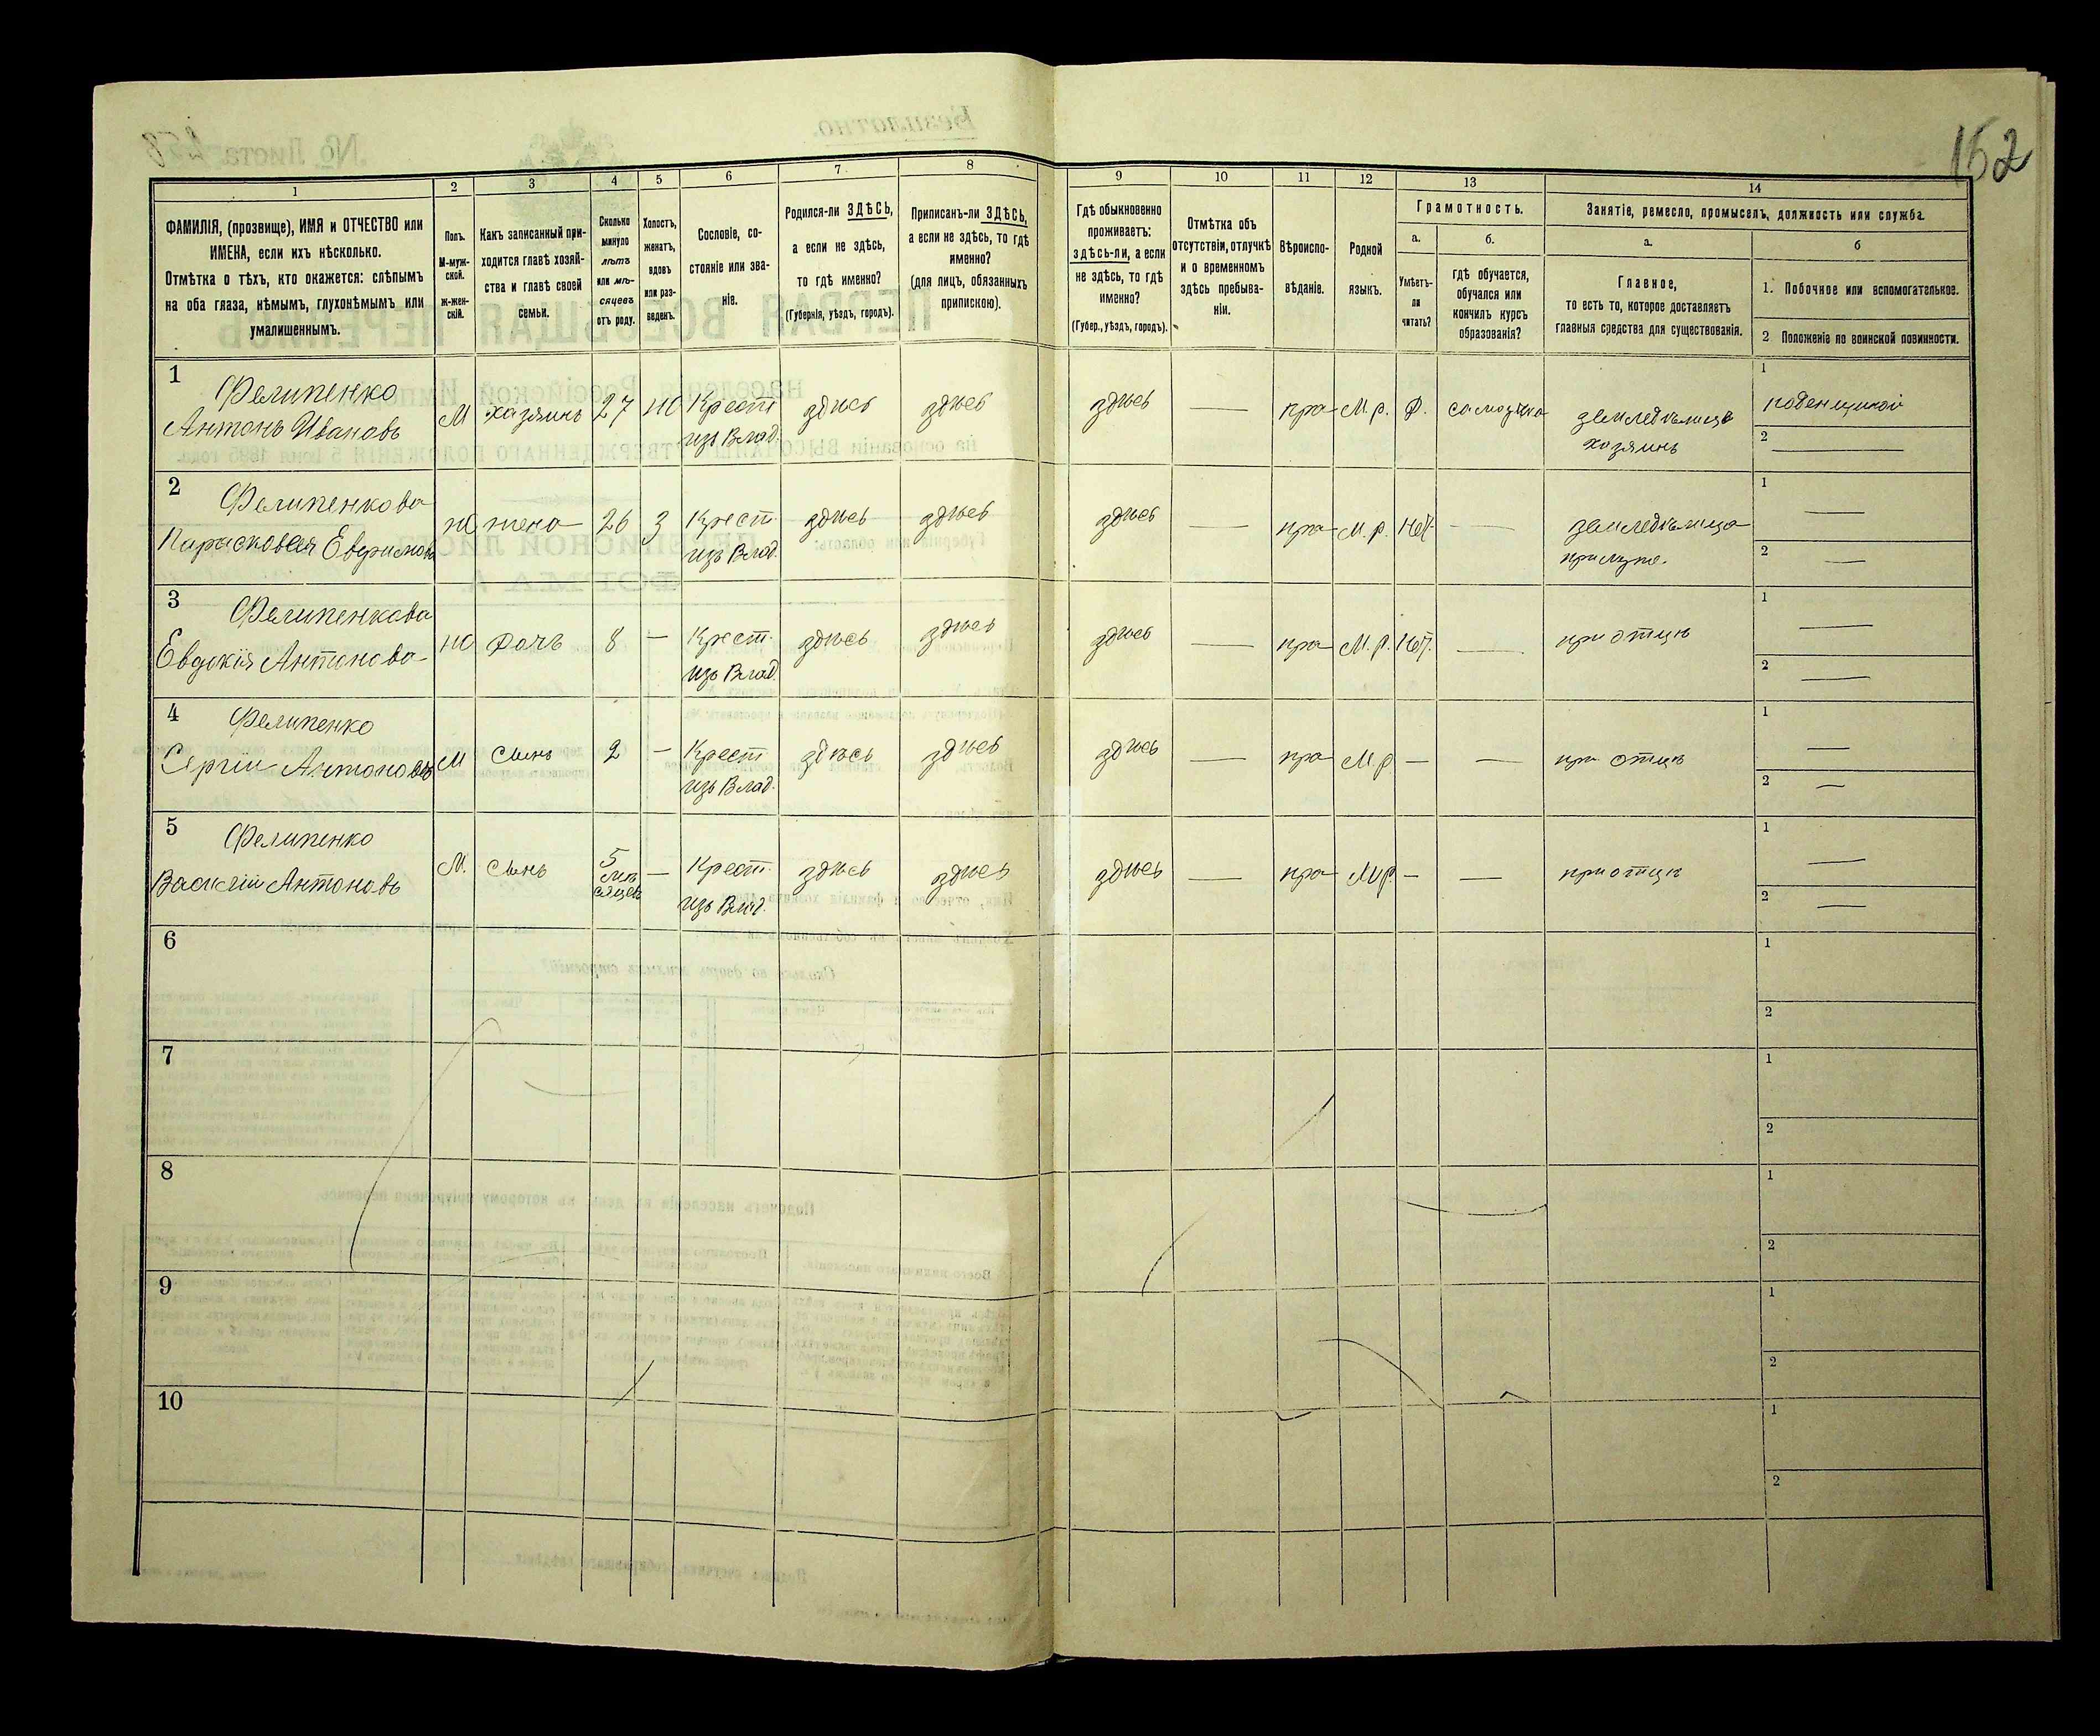 162
1 2 3 4 5 6 7 8 9 10 11 12 13 14
ФАМИЛІЯ, (прозвище), ИМЯ и ОТЧЕСТВО или
ИМЕНА, если ихъ нѣсколько.
Отмѣтка о тѣхъ, кто окажется: слѣпымъ
на оба глаза, нѣмымъ, глухонѣмымъ или
умалишеннымъ.
Полъ.
М-муж-
ской.
ж-жен-
скій.
Какъ записанный при-
ходится главѣ хозяй-
ства и главѣ своей
семьи.
Сколько
минуло
лѣтъ
или мѣ-
сяцевъ
отъ роду.
Холостъ,
женатъ,
вдовъ
или раз-
веденъ.
Сословіе, со-
стояніе или зва-
ніе.
Родился-ли ЗДѢСЬ,
а если не здѣсь,
то гдѣ именно?
(Губернія, уѣздъ, городъ).
Приписанъ-ли ЗДѢСЬ,
а если не здѣсь, то гдѣ
именно?
(для лицъ, обязанныхъ
припискою).
Гдѣ обыкновенно
проживаетъ:
здѣсь-ли, а если
не здѣсь, то гдѣ
именно?
(Губер., уѣздъ, городъ).
Отмѣтка объ
отсутствіи, отлучкѣ
и о временномъ
здѣсь пребыва-
ніи.
Вѣроиспо-
вѣданіе.
Родной
языкъ.
Грамотность.
а.
Умѣетъ-
ли
читать?
б.
гдѣ обучается,
обучался или
кончилъ курсъ
образованія?
Занятіе, ремесло, промыселъ, должность или служба.
а.
Главное,
то есть то, которое доставляетъ
главныя средства для существованія.
б
1. Побочное или вспомогательное.
2 Положеніе по воинской повинности.
1 Фелипенко
Антонъ Ивановъ
М хазяинъ 27 Ж Крест
изъ Влад.
здѣсь здѣсь здѣсь — пра М.р. Д.
земледѣлецъ
хозяинъ
1 поденщикой
2 —
2 Фелипенкова
Ж жена 26 З Крест.
изъ Влад.
здѣсь здѣсь здѣсь — пра М.р. Нѣт —
1 —
2 —
3 Фелипенкова
Евдокія Антонова
Ж Дочь 8 — Крест.
изъ Влад.
здѣсь здѣсь здѣсь — пра М.р. Нѣт. —
при отцѣ
1 —
2 —
4 Фелипенко
Сергій Антоновъ
М Сынъ 2 — Крест
изъ Влад.
здѣсь здѣсь здѣсь — пра М.р — —
при отцѣ
1 —
2 —
5 Фелипенко
Василій Антоновъ
М. Сынъ 5
мѣ
сяцевъ
— Крест.
изъ Влад.
здѣсь здѣсь здѣсь — пра М.р. — —
при отцѣ
1 —
2 —
6 1
2
7 1
2
8 1
2
9 1
2
10 1
2